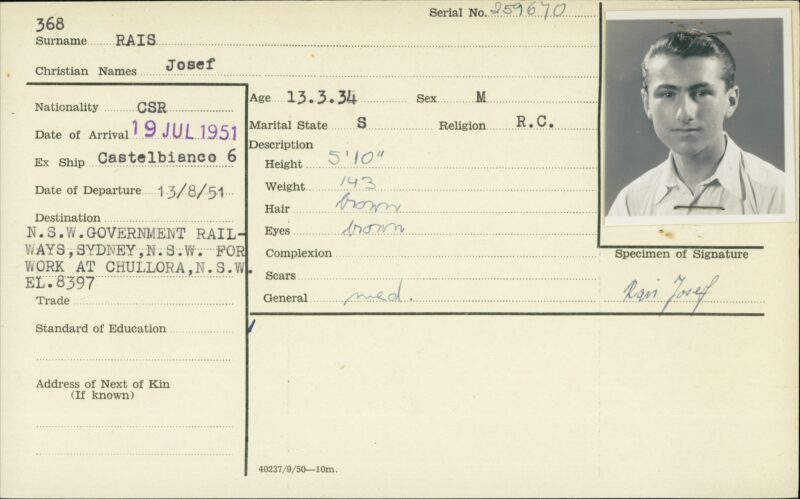 368
Serial No. 259670
Surname RAIS
Christian Names Josef
Nationality CSR
Date of Arrival 19 JUL 1951
Ex Ship Castelbianco 6
Date of Departure 13/8/51
Destination
N.S.W.GOVERNMENT RAIL-
WAYS,SYDNEY,N.S.W. FOR
WORK AT CHULLORA,N.S.W.
EL.8397
Trade
Standard of Education
Address of Next of Kin
(If known)
Age 13.3.34 Sex M
Marital State S Religion R.C.
Description
Height 5'10"
Weight 143
Hair brown
Eyes brown
Complexion
Scars
General med.
Specimen of Signature
Rais Josef
40237/9/50—10m.